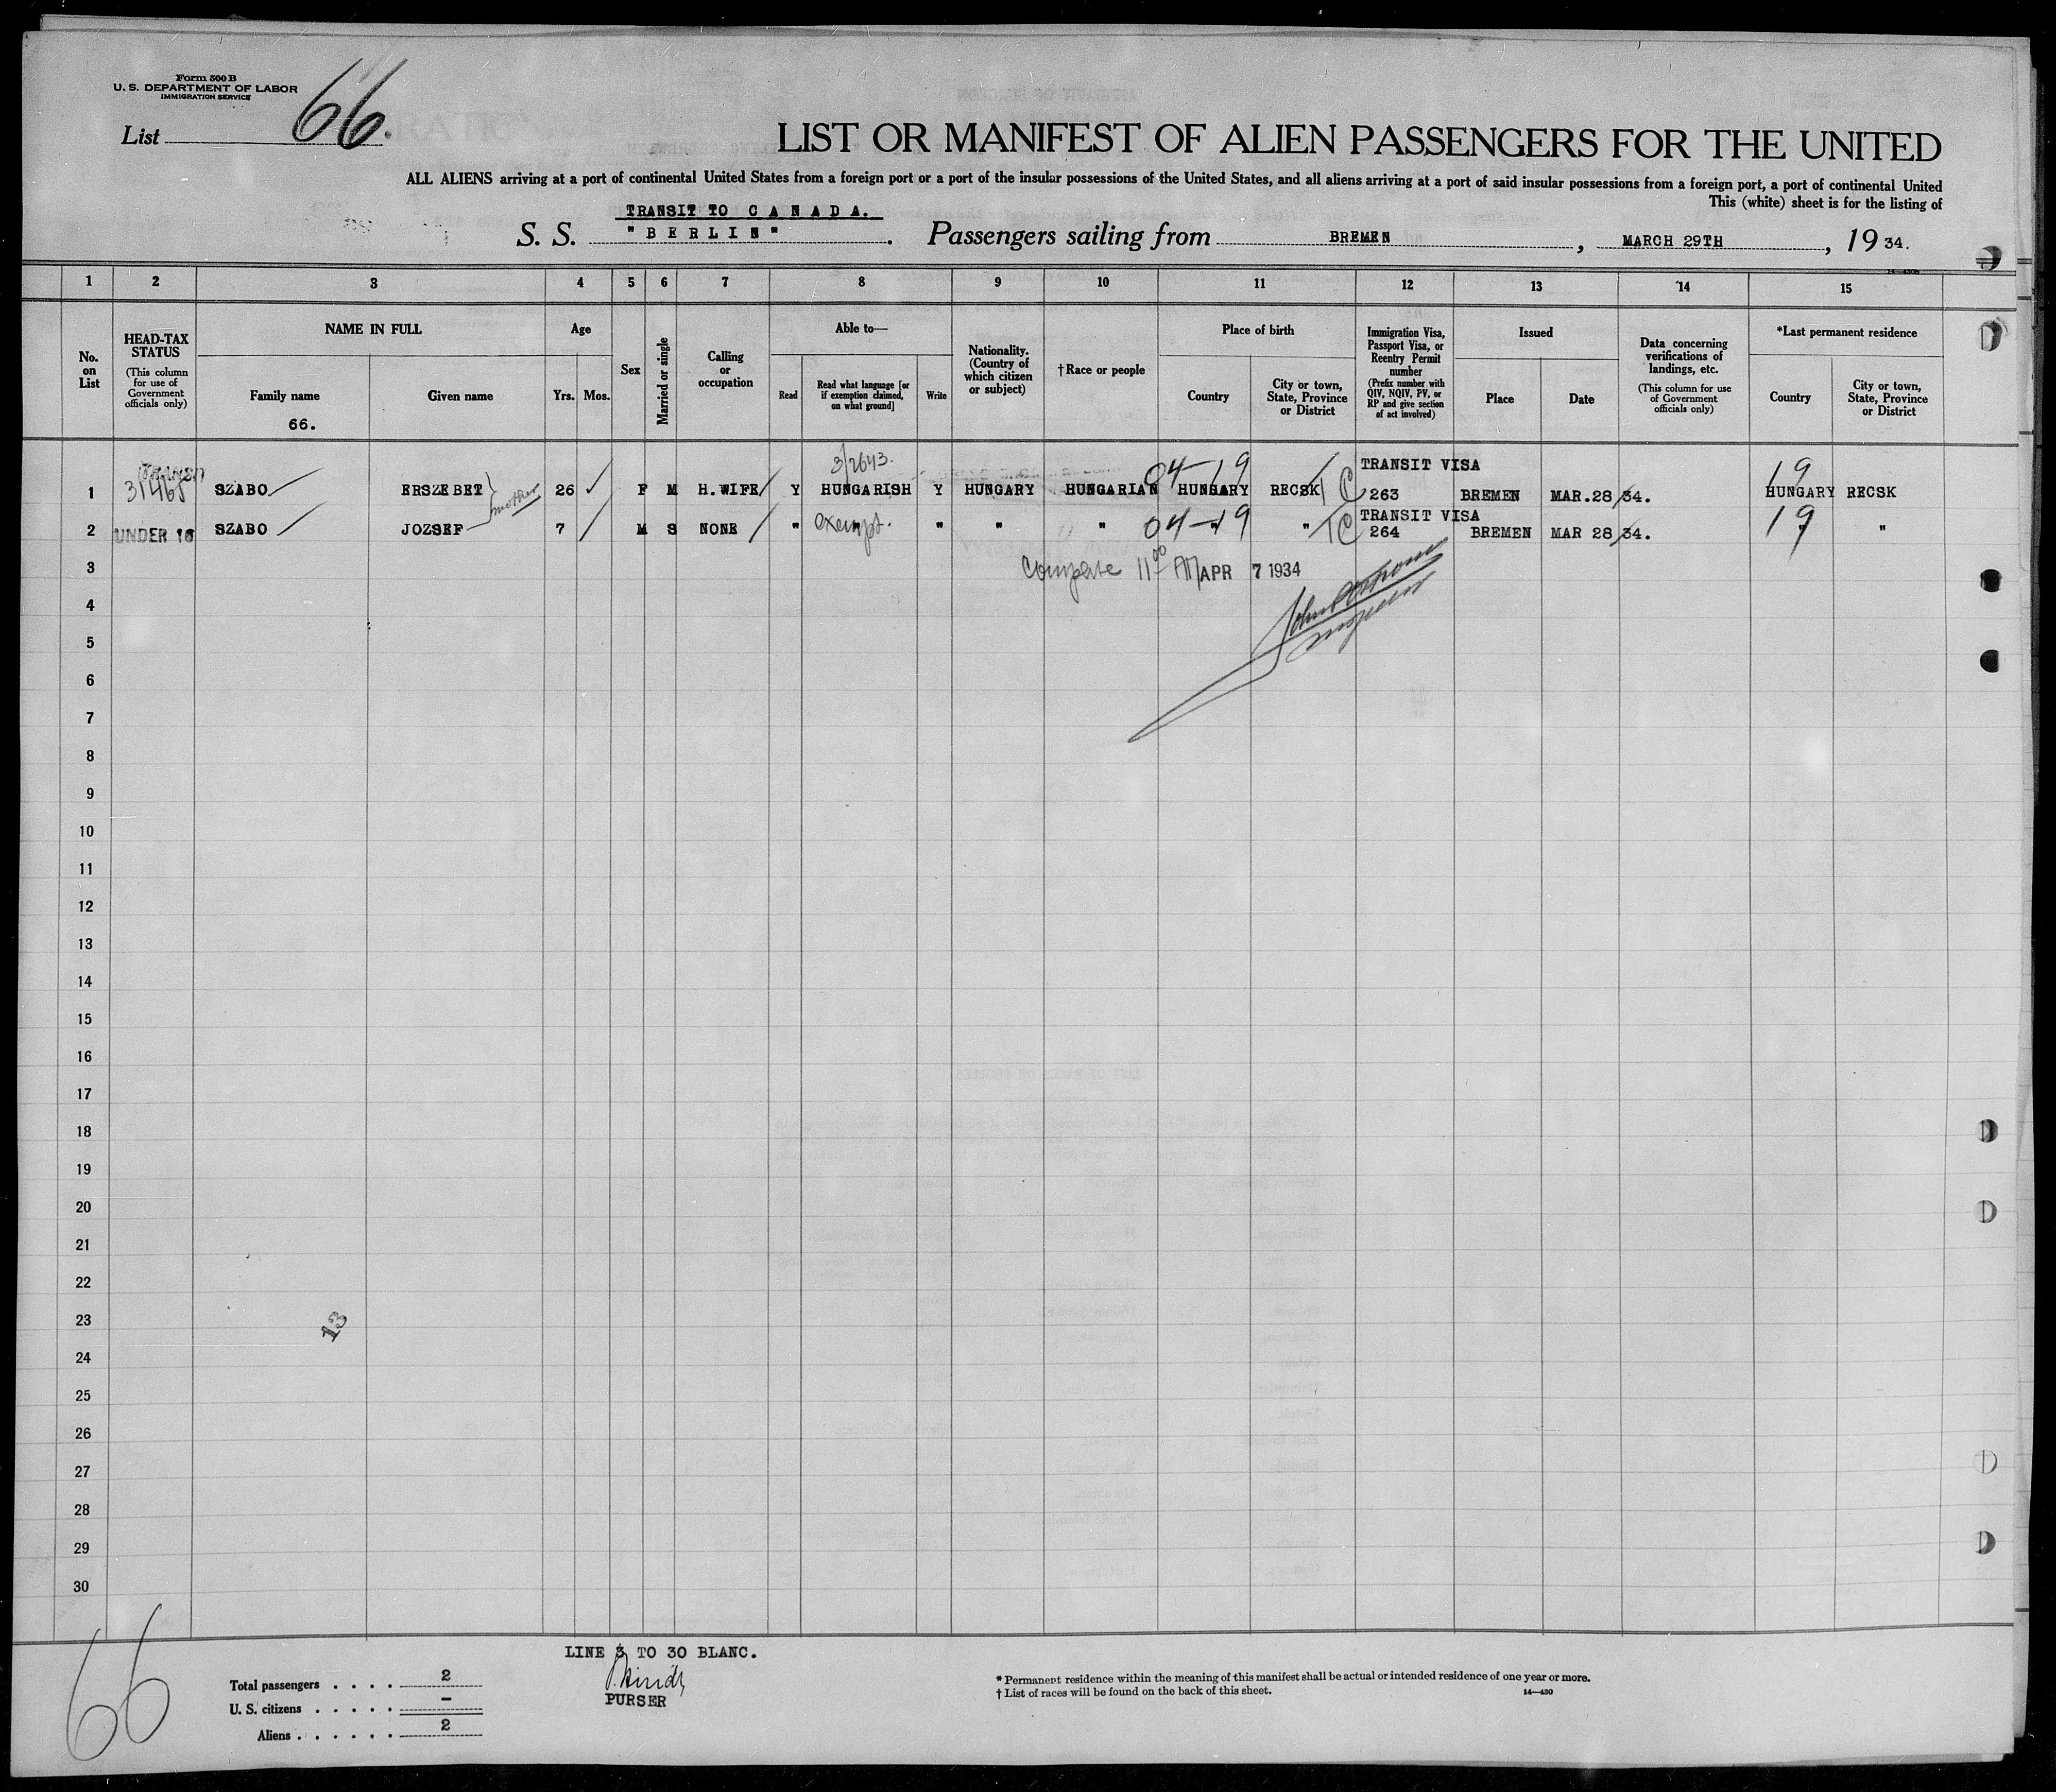 Form 500 B
U. S. DEPARTMENT OF LABOR
IMMIGRATION SERVICE
List 66.
LIST OR MANIFEST OF ALIEN PASSENGERS FOR THE UNITED
ALL ALIENS arriving at a port of continental United States from a foreign port or a port of the insular possessions of the United States, and all aliens arriving at a port of said insular possessions from a foreign port, a port of continental United
This (white) sheet is for the listing of
TRANSIT TO CANADA.
S. S. "BERLIN". Passengers sailing from BREMEN, MARCH 29TH, 19 34.
1 2 3 4 5 6 7 8 9 10 11 12 13 14 15
No. on List
HEAD-TAX STATUS (This column for use of Government officials only)
NAME IN FULL
Family name
66.
Given name
Age
Yrs. Mos.
Sex
Married or single
Calling or occupation
Able to—
Read
Read what language [or if exemption claimed, on what ground]
Write
Nationality. (Country of which citizen or subject)
†Race or people
Place of birth
Country
City or town, State, Province or District
Immigration Visa, Passport Visa, or Reentry Permit number (Prefix number with QIV, NQIV, PV, or RP and give section of act involved)
Issued
Place
Date
Data concerning verifications of landings, etc. (This column for use of Government officials only)
*Last permanent residence
Country
City or town, State, Province or District
3/2643. 04-19 TRANSIT VISA 19
1 31465 SZABO ERSZEBET mother 26 F M H.WIFE Y HUNGARISH Y HUNGARY HUNGARIAN HUNGARY RECSK TC 263 BREMEN MAR.28/34. HUNGARY RECSK
TRANSIT VISA
2 UNDER 16 SZABO JOZSEF 7 M S NONE " exempt. " " " 04-19 " TC 264 BREMEN MAR 28/34. 19 "
3 11 00 AM APR 7 1934
4
5
6
7
8
9
10
11
12
13
14
15
16
17
18
19
20
21
22
23
13
24
25
26
27
28
29
30
66
LINE 3 TO 30 BLANC.
PURSER
Total passengers . . . . 2
U. S. citizens . . . . . –
Aliens . . . . . . 2
* Permanent residence within the meaning of this manifest shall be actual or intended residence of one year or more.
† List of races will be found on the back of this sheet. 14—430